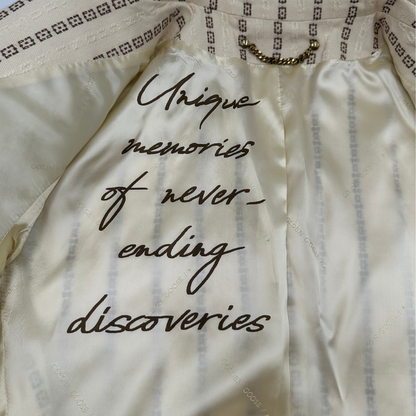 Unique
memories
of never-
ending
discoveries